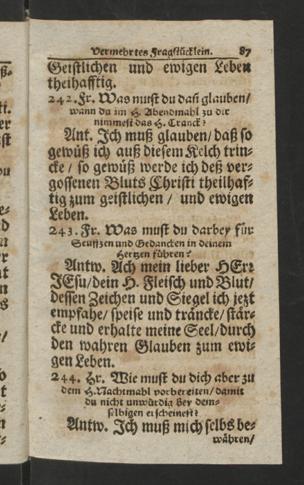 Vermehrtes Fragstücklein. 87
Geistlichen und ewigen Leben
theilhafftig.
242. Fr. Was must du dañ glauben/
wann du im H. Abendmahl zu dir
nimmest das H. Tranck?
Ant. Ich muß glauben/ daß so
gewüß ich auß diesem Kelch trin-
cke / so gewüß werde ich deß ver-
gossenen Bluts Christi theilhaf-
tig zum geistlichen / und ewigen
Leben.
243. Fr. Was must du darbey für
Seuffzen und Gedancken in deinem
Hertzen führen?
Antw. Ach mein lieber HErr
JEsu/ dein H. Fleisch und Blut/
dessen Zeichen und Siegel ich jezt
empfahe/ speise und träncke/ stär-
cke und erhalte meine Seel/ durch
den wahren Glauben zum ewi-
gen Leben.
244. Fr. Wie must du dich aber zu
dem H. Nachtmahl vorbereiten/ damit
du nicht unwürdig bey dem-
selbigen erscheinest?
Antw. Ich muß mich selbs be-
währen/